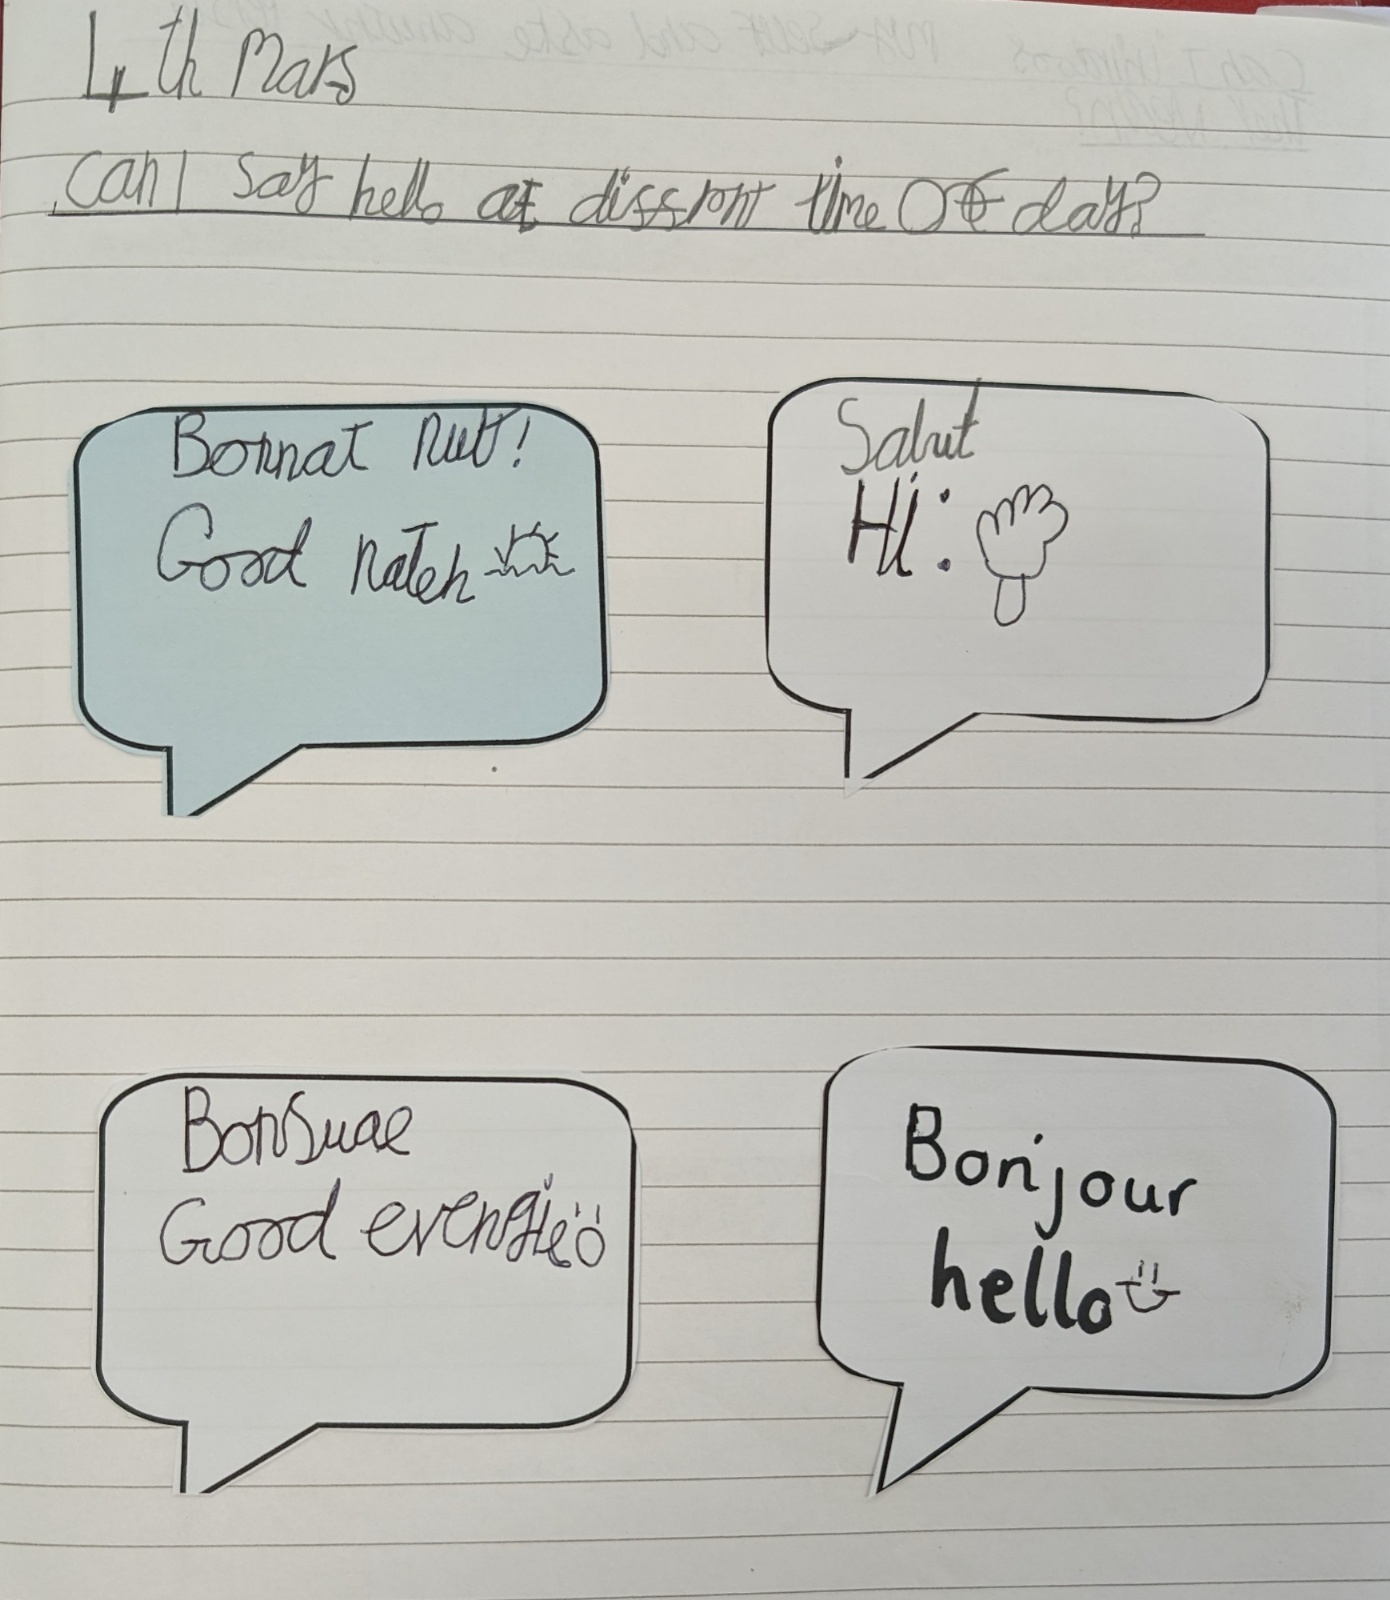 4th Mars
Can I say hello at dissront time OF day?
Bonnat nut!
Good nateh
Salut
Hi:
Bonsuae
Good evengie
Bonjour
hello